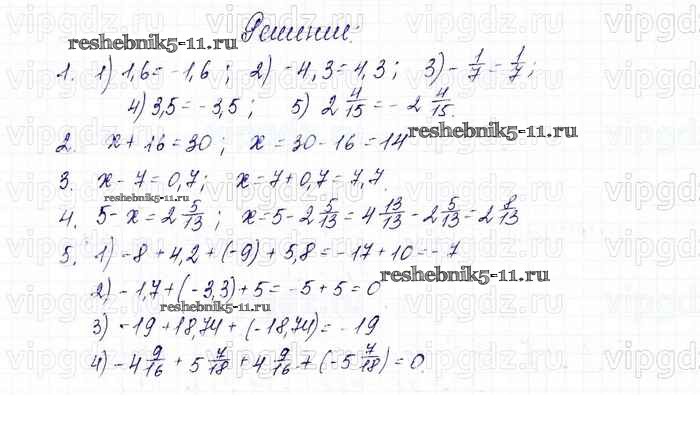 vipgdz.ru vipgdz.ru vipgdz.ru vipgdz.ru
Решение:
reshebnik5-11.ru
1. 1) 1,6 = -1,6 ; 2) -4,3 = 4,3 ; 3) - 1/7 = 1/7 ;
4) 3,5 = -3,5 ; 5) 2 4/15 = -2 4/15.
reshebnik5-11.ru
2. x + 16 = 30 ; x = 30 - 16 = 14
3. x - 7 = 0,7 ; x = 7 + 0,7 = 7,7.
reshebnik5-11.ru
4. 5 - x = 2 5/13 ; x = 5 - 2 5/13 = 4 13/13 - 2 5/13 = 2 8/13
5. 1) -8 + 4,2 + (-9) + 5,8 = -17 + 10 = -7
reshebnik5-11.ru
2) -1,7 + (-3,3) + 5 = -5 + 5 = 0
reshebnik5-11.ru
3) -19 + 18,74 + (-18,74) = -19
4) -4 9/16 + 5 7/18 + 4 9/16 + (-5 7/18) = 0.